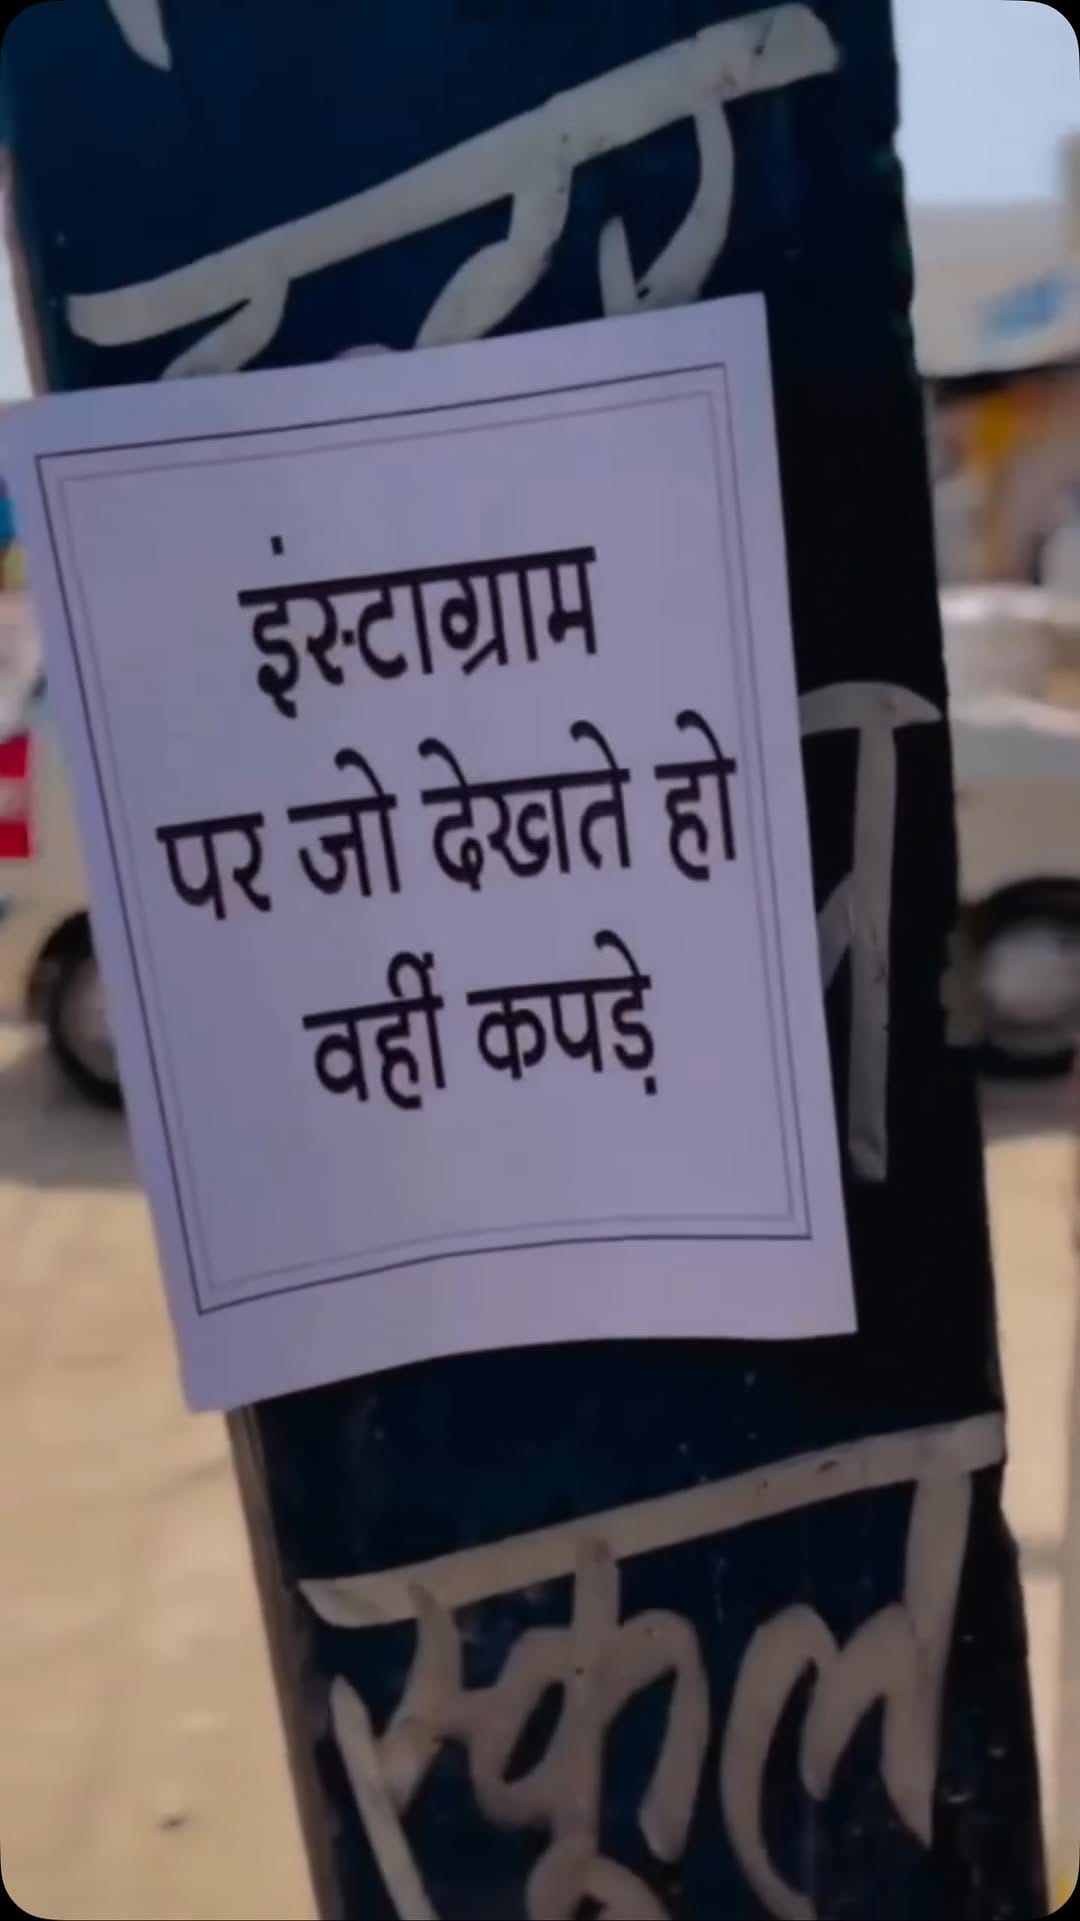 इंस्टाग्राम
पर जो देखते हो
वहीं कपड़े
स्कूल